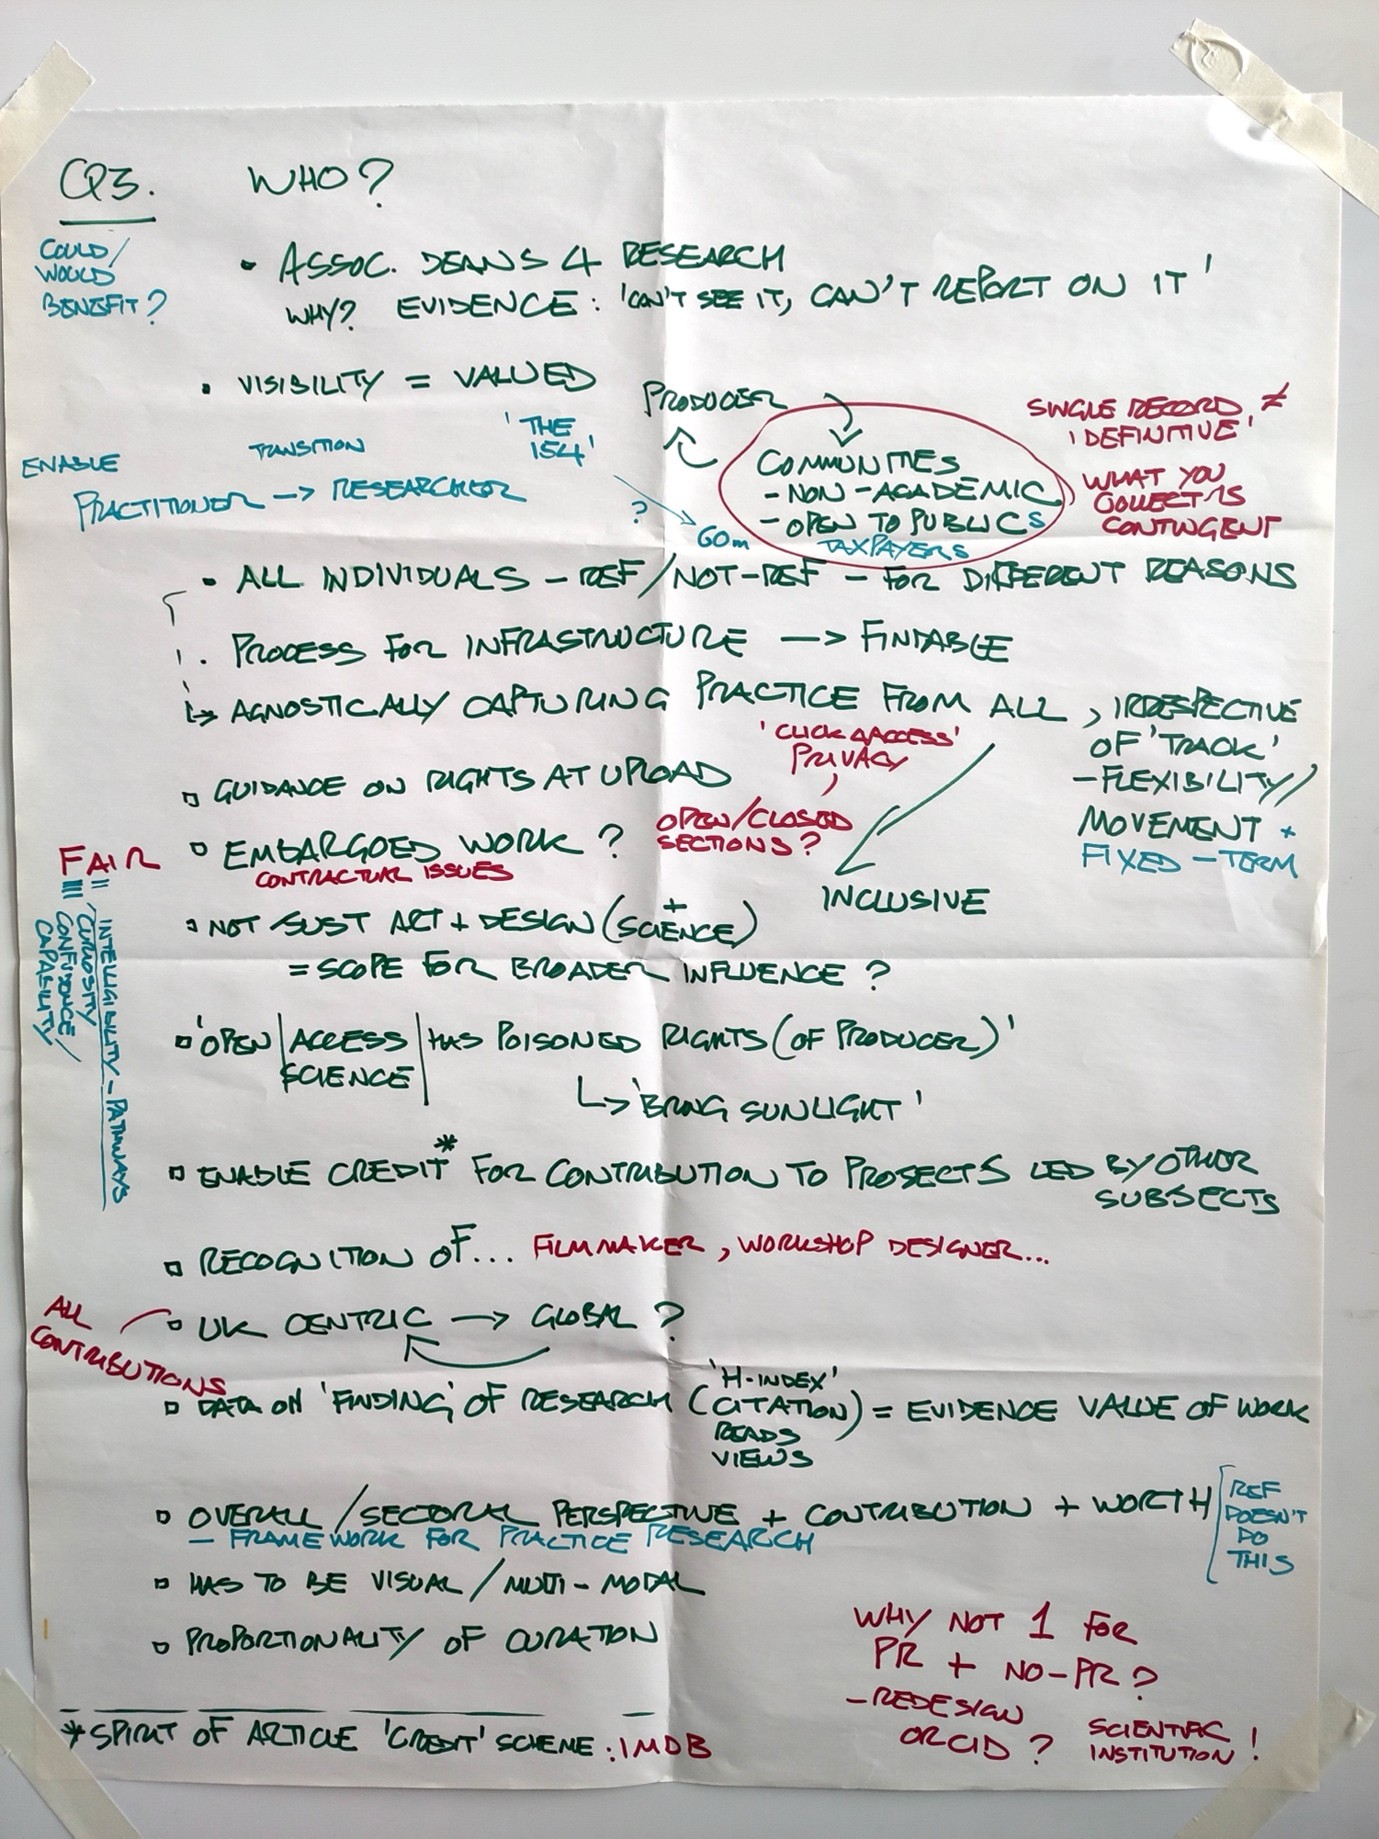 Q3. WHO?
COULD/
WOULD
BENEFIT?
• ASSOC. DEANS 4 RESEARCH
WHY? EVIDENCE: 'CAN'T SEE IT, CAN'T REPORT ON IT'
• VISIBILITY = VALUED
ENABLE
TRANSITION
PRACTITIONER -> RESEARCHER
'THE
154'
?
60m
PRODUCER
COMMUNITIES
- NON-ACADEMIC
- OPEN TO PUBLICS
TAXPAYERS
SINGLE RECORD ≠
'DEFINITIVE'
WHAT YOU
COLLECT IS
CONTINGENT
• ALL INDIVIDUALS - REF/NOT-REF - FOR DIFFERENT REASONS
• PROCESS FOR INFRASTRUCTURE -> FINDABLE
-> AGNOSTICALLY CAPTURING PRACTICE FROM ALL, IRRESPECTIVE
OF 'TRACK'
- FLEXIBILITY/
MOVEMENT +
FIXED-TERM
INCLUSIVE
'CLICK & ACCESS'
PRIVACY
OPEN/CLOSED
SECTIONS?
▫ GUIDANCE ON RIGHTS AT UPLOAD
▫ EMBARGOED WORK?
CONTRACTUAL ISSUES
FAIR
INTELLIGIBILITY - PATHWAYS
CURIOSITY
CONFIDENCE/
CAPABILITY
▫ NOT JUST ART + DESIGN (+ SCIENCE)
= SCOPE FOR BROADER INFLUENCE?
▫ 'OPEN | ACCESS | HAS POISONED RIGHTS (OF PRODUCER)'
SCIENCE
-> 'BRING SUNLIGHT'
▫ ENABLE CREDIT* FOR CONTRIBUTION TO PROJECTS LED BY OTHER
SUBJECTS
▫ RECOGNITION OF... FILMMAKER, WORKSHOP DESIGNER...
▫ UK CENTRIC -> GLOBAL?
ALL
CONTRIBUTIONS
'H-INDEX'
▫ DATA ON 'FINDING' OF RESEARCH (CITATION) = EVIDENCE VALUE OF WORK
READS
VIEWS
▫ OVERALL/SECTORAL PERSPECTIVE + CONTRIBUTION + WORTH
- FRAMEWORK FOR PRACTICE RESEARCH
REF
DOESN'T
DO
THIS
▫ HAS TO BE VISUAL/MULTI-MODAL
▫ PROPORTIONALITY OF CURATION
WHY NOT 1 FOR
PR + NO-PR?
- REDESIGN
ORCID?
SCIENTIFIC
INSTITUTION!
* SPIRIT OF ARTICLE 'CREDIT' SCHEME: IMDB